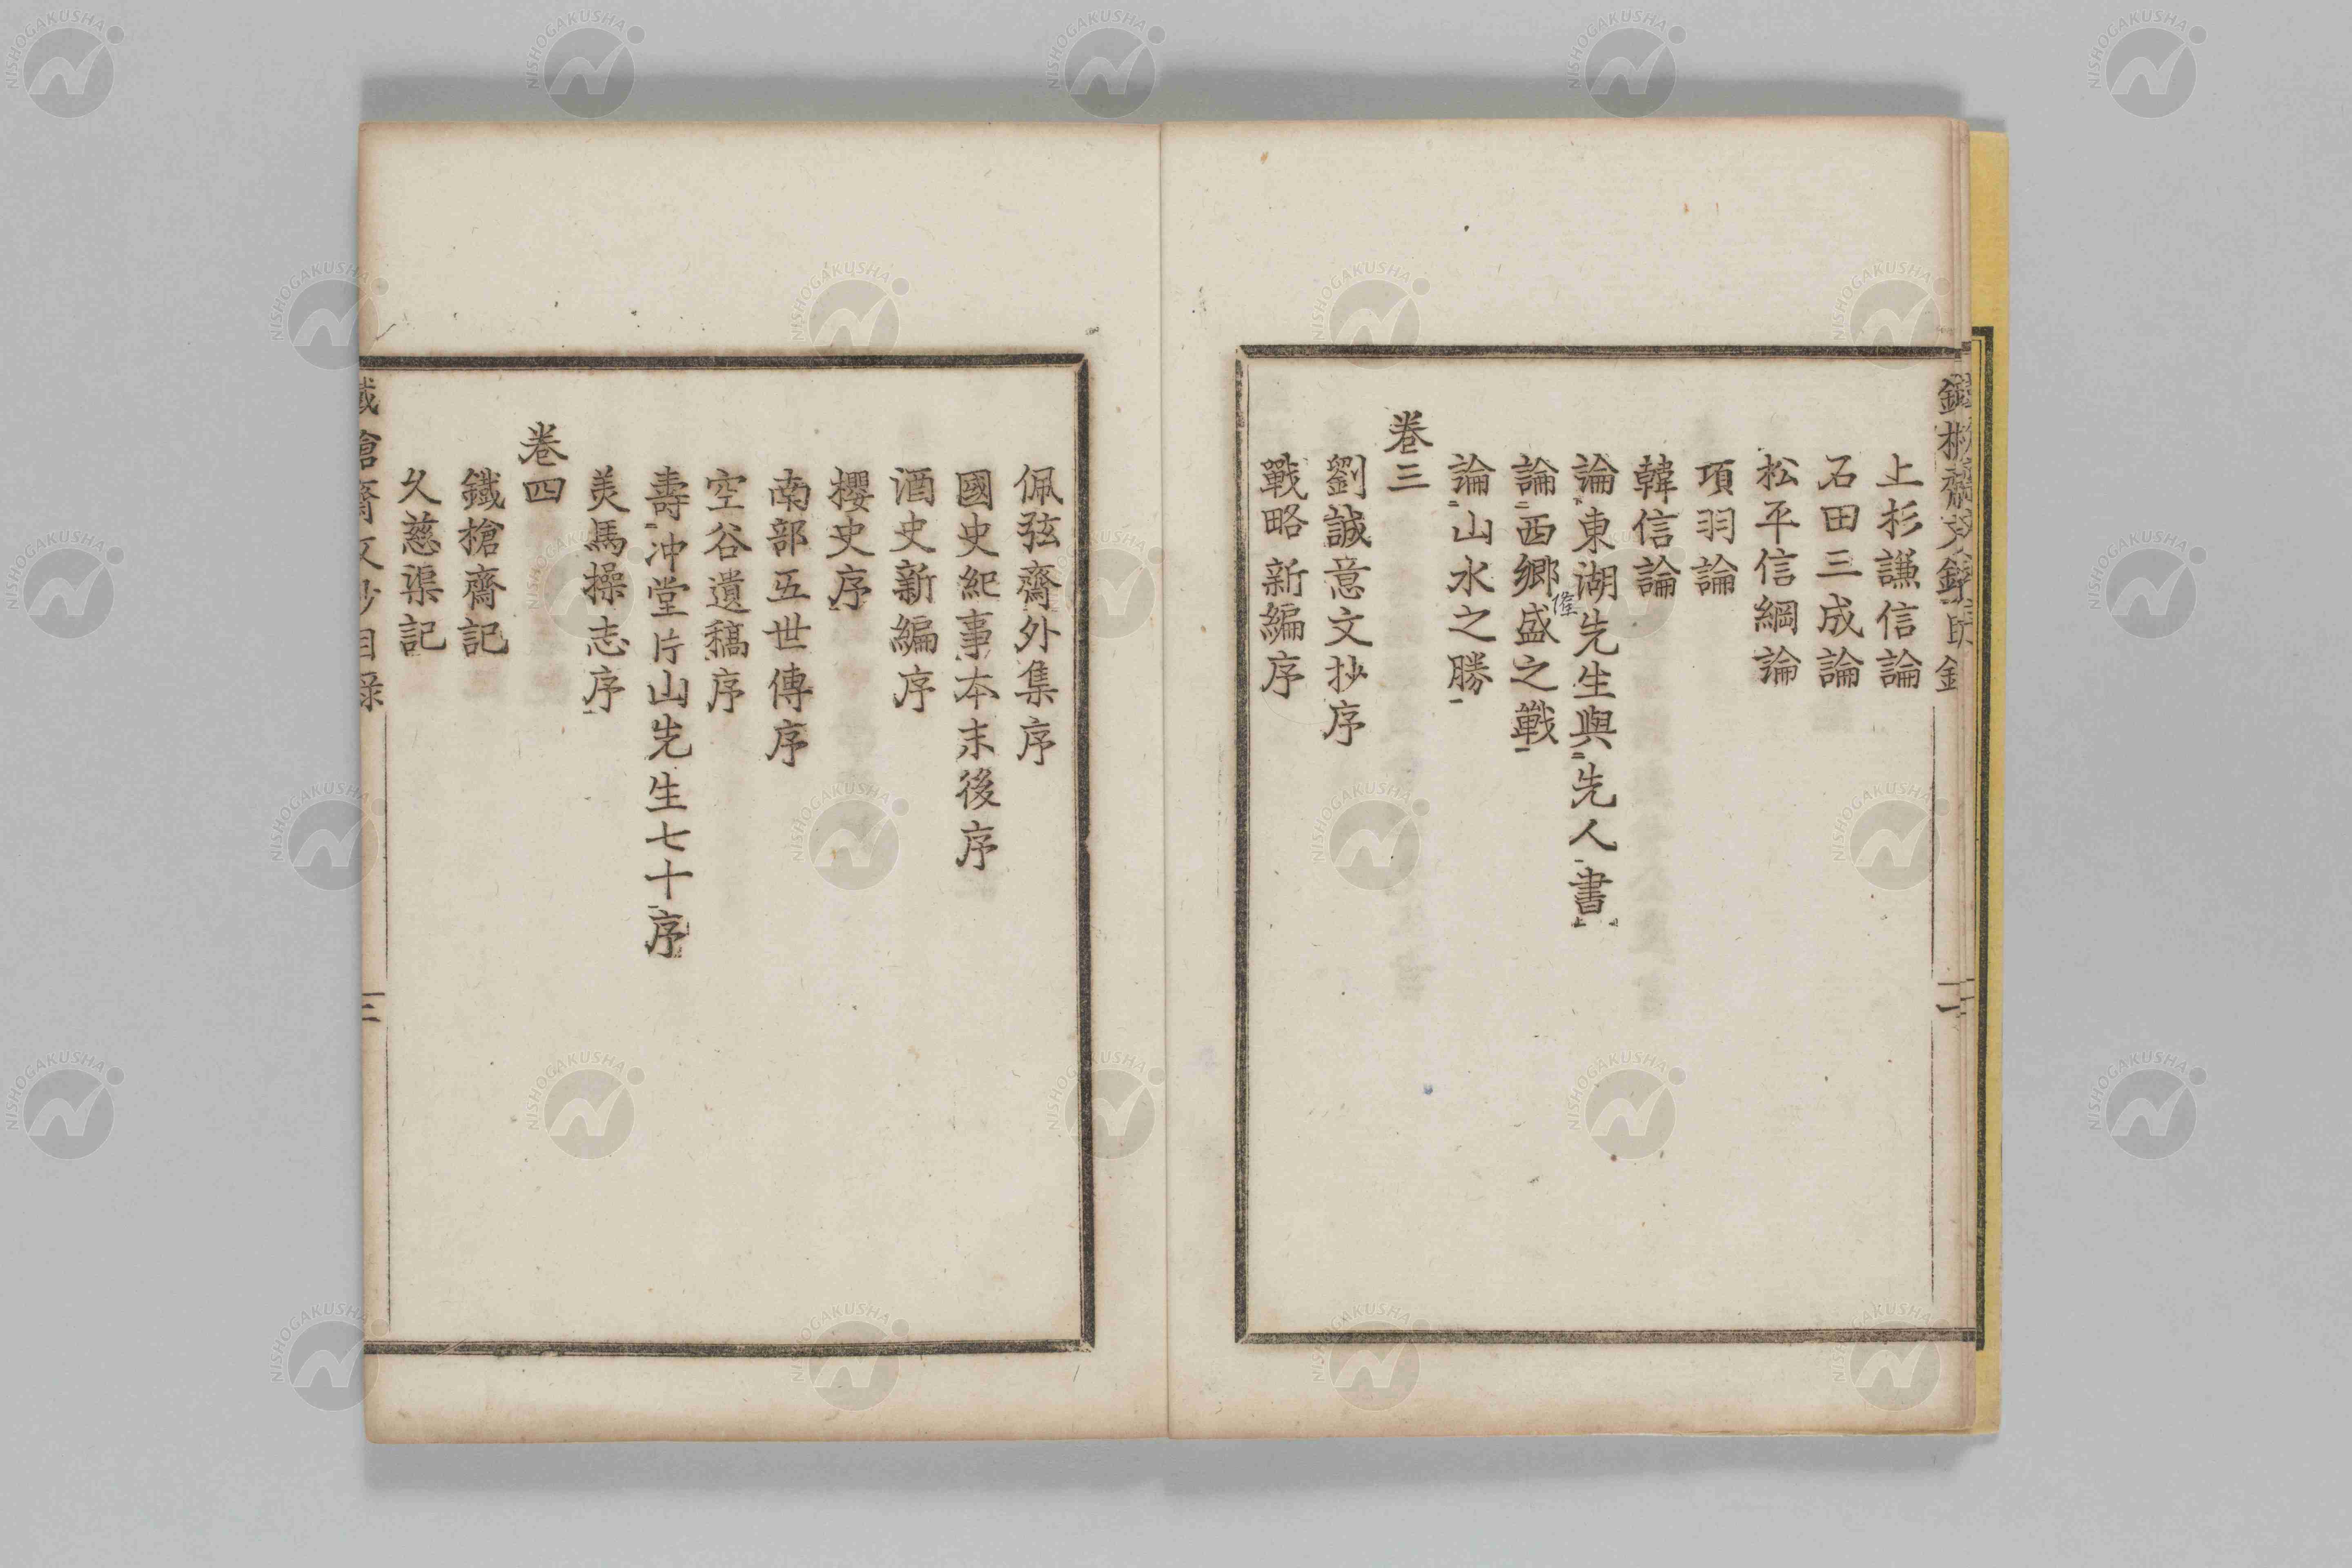 上杉謙信論
石田三成論
松平信綱論
項羽論
韓信論
論東湖先生與先人書
論西郷隆盛之戰
論山水之勝
卷三
劉誠意文抄序
戰略新編序
佩弦齋外集序
國史紀事本末後序
酒史新編序
櫻史序
南部五世傳序
空谷遺稿序
壽冲堂片山先生七十序
美馬操志序
卷四
鐵槍齋記
久慈渠記
三
NISHOGAKUSHA